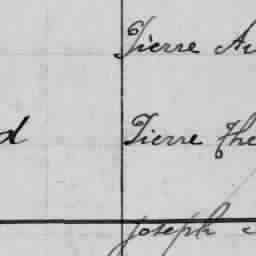 Pierre Au
d Pierre The
Joseph